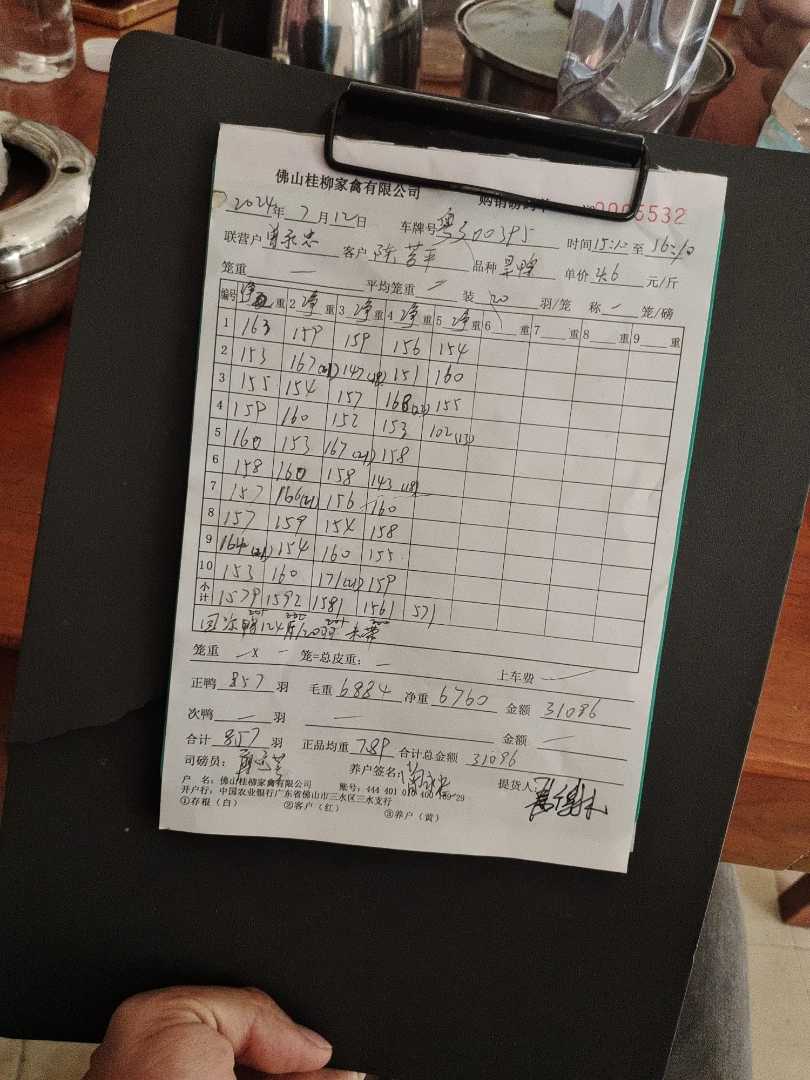 佛山桂柳家禽有限公司 购销磅码单 5532
2024年 7月12日 车牌号 粤 00395 时间 15:10 至 16:10
联营户 客户 陈 平 品种 单价 4.6 元/斤
笼重 — 平均笼重 — 装 20 羽/笼 称 — 笼/磅
编号 净重 2 净重 3 净重 4 净重 5 净重 6 重 7 重 8 重 9 重
1 163 159 159 156 154
2 153 167(21) 147(18) 151 160
3 155 154 157 168(22) 155
4 159 160 152 153 102(13)
5 160 153 167(21) 158
6 158 160 158 143(18)
7 157 166(21) 156 160
8 157 159 154 158
9 164(21) 154 160 155
10 153 160 171(22) 159
小计 1579 1592 1581 1561 571
笼重 —x — 笼=总皮重: — 上车费 —
正鸭 857 羽 毛重 6884 净重 6760 金额 31096
次鸭 — 羽 — 金额 —
合计 857 羽 正品均重 7.89 合计总金额 31096
司磅员: 养户签名: 提货人:
户 名: 佛山桂柳家禽有限公司 账号: 444 401 29
开户行: 中国农业银行广东省佛山市三水区三水支行
①存根(白) ②客户(红) ③养户(黄)